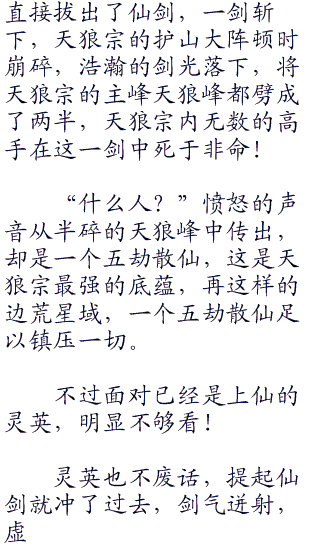 直接拔出了仙剑，一剑斩
下，天狼宗的护山大阵顿时
崩碎，浩瀚的剑光落下，将
天狼宗的主峰天狼峰都劈成
了两半，天狼宗内无数的高
手在这一剑中死于非命！
“什么人？”愤怒的声
音从半碎的天狼峰中传出，
却是一个五劫散仙，这是天
狼宗最强的底蕴，再这样的
边荒星域，一个五劫散仙足
以镇压一切。
不过面对已经是上仙的
灵英，明显不够看！
灵英也不废话，提起仙
剑就冲了过去，剑气迸射，
虚